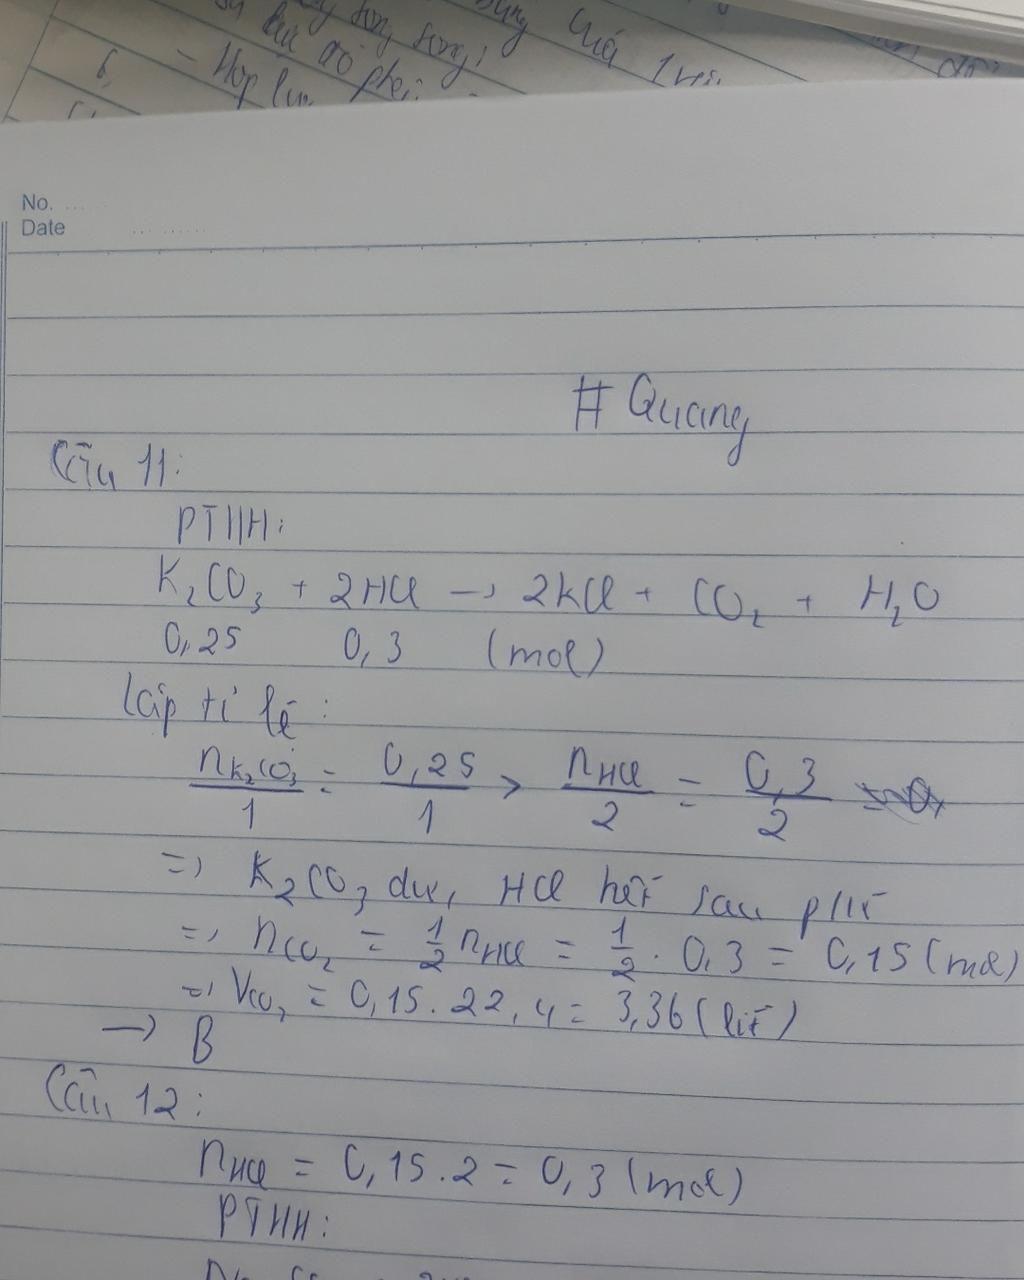 dụng của 1 vài
- Hợp lực song song,
6,
No.
Date
# Quang
Câu 11:
PTHH:
K₂CO₃ + 2HCl → 2KCl + CO₂ + H₂O
0,25 0,3 (mol)
Lập tỉ lệ:
nK₂CO₃/1 = 0,25/1 > nHCl/2 = 0,3/2
=> K₂CO₃ dư, HCl hết sau pứ
=> nCO₂ = 1/2 nHCl = 1/2 . 0,3 = 0,15 (mol)
=> VCO₂ = 0,15 . 22,4 = 3,36 (lít)
→ B
Câu 12:
nHCl = 0,15 . 2 = 0,3 (mol)
PTHH: